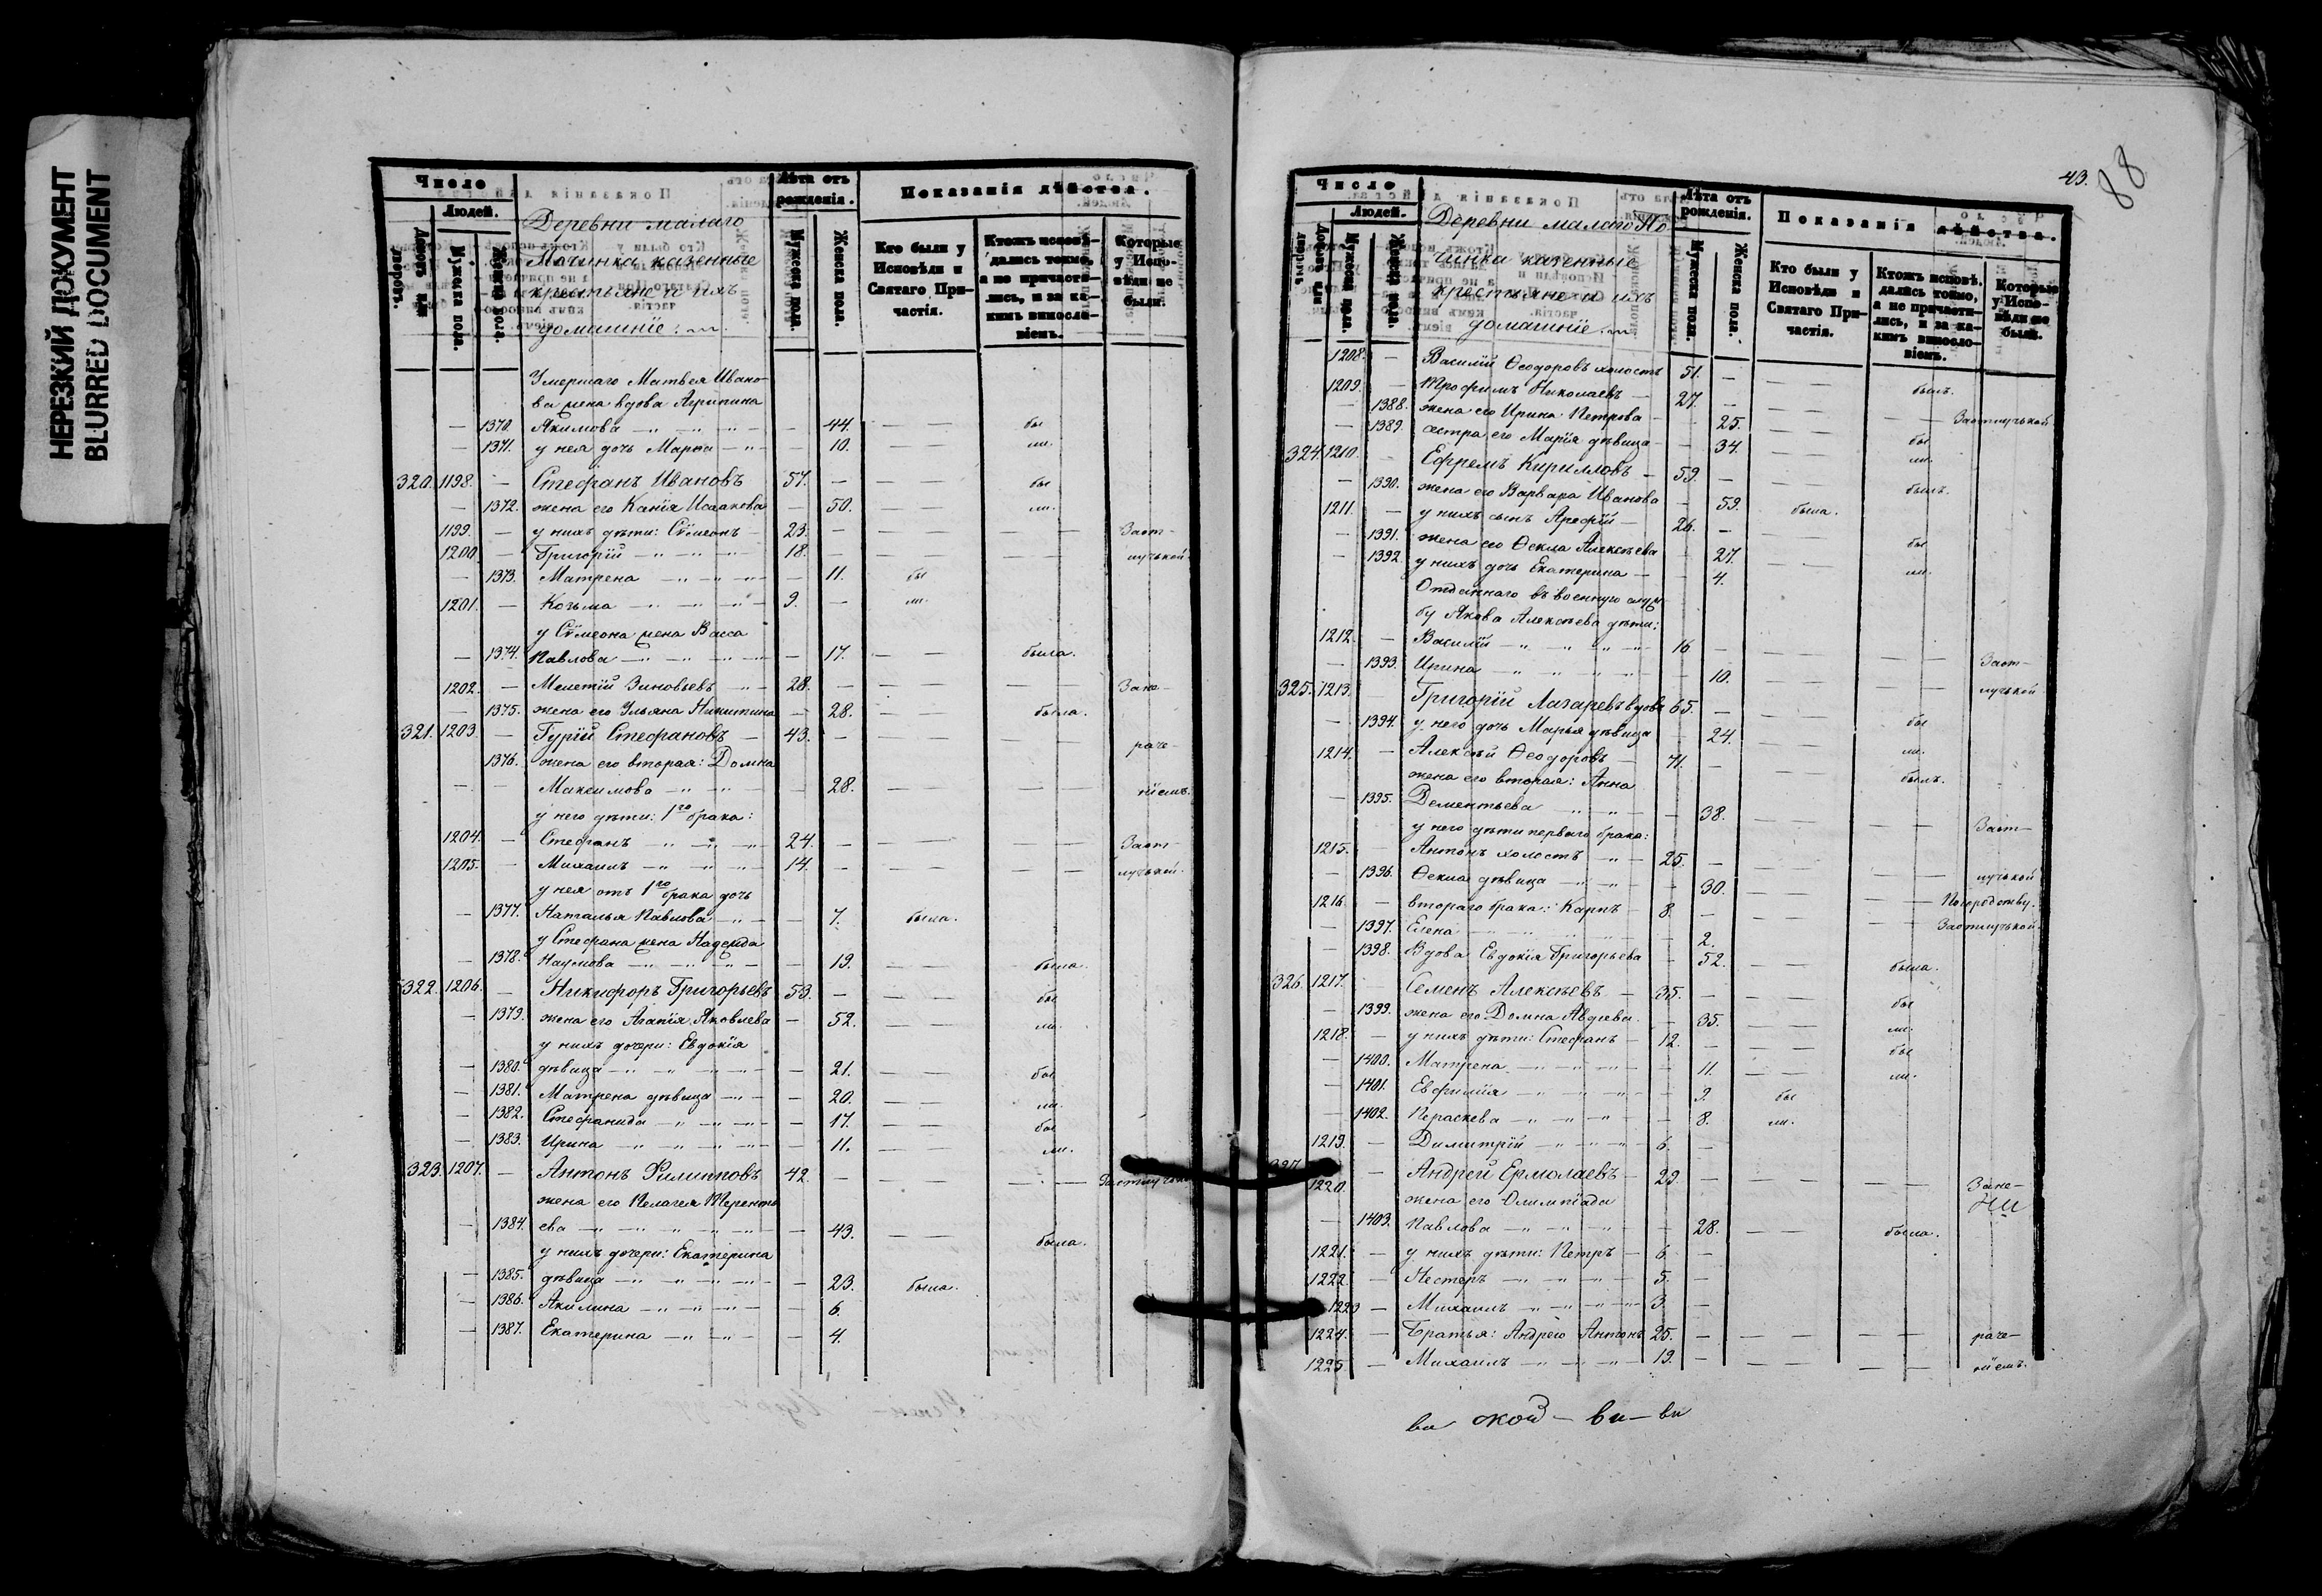 НЕРЕЗКИЙ ДОКУМЕНТ
BLURRED DOCUMENT
Число
Людей.
Дворовъ или дворъ.
Мужеска полъ.
Женска полъ.
Деревни малаго
Починка казенные
крестьяне и ихъ
домашніе:
Лѣта отъ рожденія.
Мужеска полъ.
Женска полъ.
Показанія дѣйства.
Кто были у Исповѣди и Святаго Причастія.
Ктожъ исповѣдались токмо, а не причастились, и за какимъ винословіемъ.
Которые у Исповѣди не были.
Умершаго Матвея Ивано-
ва жена вдова Агрипина
— 1370. Акимова — 44. — — бы
— 1371. у нея дочь Марѳа — 10. — — ли.
320. 1198. — Стефанъ Ивановъ 57. — — — бы
— 1372. жена его Исаакова — 50. — — ли.
1199. — у нихъ дѣти: Сѵмеонъ — 23. — — — — — Заот-
1200. — Григорій — 18. — — — — — лучькой.
— 1373. Матрена — 11. бы
1201. — Козьма — 9. — ли.
у Сѵмеона жена Васса
— 1374. Павлова — 17. — — была.
1202. — Мелетій Зиновьевъ — 28. — — — — — Зане-
— 1375. жена его Ульяна Никитина — 28. — — была.
321. 1203. — Гурій Стефановъ — 43. — — — — — раче-
1376. жена его вторая: Домна
— — Максимова — 28. — — — — ніемъ.
у него дѣти: 1го брака:
1204. — Стефанъ — 24. — — — — — Заот-
1205. — Михаилъ — 14. — — — — — лучькой.
у нея отъ 1го брака дочь
— 1377. Наталья Павлова — 7. была.
у Стефана жена Надежда
— 1378. Наумова — 19. — — была.
322. 1206. — Никифоръ Григорьевъ 53. — — — бы
— 1379. жена его Агапія Яковлева — 52. — — ли.
у нихъ дочери: Евдокія
— 1380. дѣвица — 21. — — бы
— 1381. Матрена дѣвица — 20. — — ли.
— 1382. Стефанида — 17. — — бы
— 1383. Ирина — 11. — — ли.
323. 1207. — Антонъ Филипповъ 42. — — — — —
жена его Пелагея Теренть
— 1384. ева — 43. — — была.
у нихъ дочери: Екатерина
— 1385. дѣвица — 23. была.
— 1386. Акилина — 6.
— 1387. Екатерина — 4.
43.
88
Число
Людей.
Дворовъ или дворъ.
Мужеска полъ.
Женска полъ.
Деревни малаго По
чинка казенные
крестьяне и ихъ
домашніе:
Лѣта отъ рожденія.
Мужеска полъ.
Женска полъ.
Показанія дѣйства.
Кто были у Исповѣди и Святаго Причастія.
Ктожъ исповѣдались токмо, а не причастились, и за какимъ винословіемъ.
Которые у Исповѣди не были.
1208. — Василій Ѳеодоровъ холостъ 51. — — — былъ.
1209. — Трофимъ Николаевъ — 27. — — — — — Заотлучькой
— 1388. жена его Ирина Петрова — 25. — — бы
— 1389. сестра его Марія дѣвица — 34. — — ли.
324. 1210. — Ефремъ Кирилловъ — 59. — — — былъ.
— 1390. жена его Варвара Иванова — 59. была.
1211. — у нихъ сынъ Арефій — 26. — — — бы
— 1391. жена его Ѳекла Алексѣева — 27. — — ли.
— 1392. у нихъ дочь Екатерина — 4.
Отданнаго въ военную служ
бу Якова Алексѣева дѣти:
1212. — Василій — 16 — — — — — Заот-
— 1393. Ирина — 10. — — — — лучькой
325. 1213. Григорій Лазаревъ вдовъ 65. — — — бы
— 1394. у него дочь Марья дѣвица — 24. — — ли.
1214. — Алексѣй Ѳеодоровъ — 71. — — — былъ.
жена его вторая: Анна
— 1395. Дементьева — 38. — — — — Заот-
у него дѣти перваго брака:
1215. — Антонъ холостъ — 25. — — — — — лучькой
— 1396. Ѳекла дѣвица — 30. — — — —
1216. — втораго брака: Карпъ — 8. — — — — —
— 1397. Елена — 2.
— 1398. Вдова Евдокія Григорьева — 52. — — была.
326. 1217. — Семенъ Алексѣевъ — 35. — — — бы
— 1399. жена его Домна Авдеева — 35. — — ли.
1218. — у нихъ дѣти: Стефанъ — 12. — — — бы
— 1400. Матрена — 11. — — ли.
— 1401. Евфимія — 9. бы
— 1402. Параскева — 8. ли.
1219. — Димитрій — 6. —
327. 1220. — Андрей Ермолаевъ — 29. — — — — — Зане-
жена его Олимпіада
— 1403. Павлова — 28. — — была.
1221. — у нихъ дѣти: Петръ — 6. —
1222. — Нестеръ — 5. —
1223 — Михаилъ — 3. —
1224. — Братья: Андрея Антонъ 25. — — — — — раче-
1225 — Михаилъ — 19. — — — — — ніемъ.